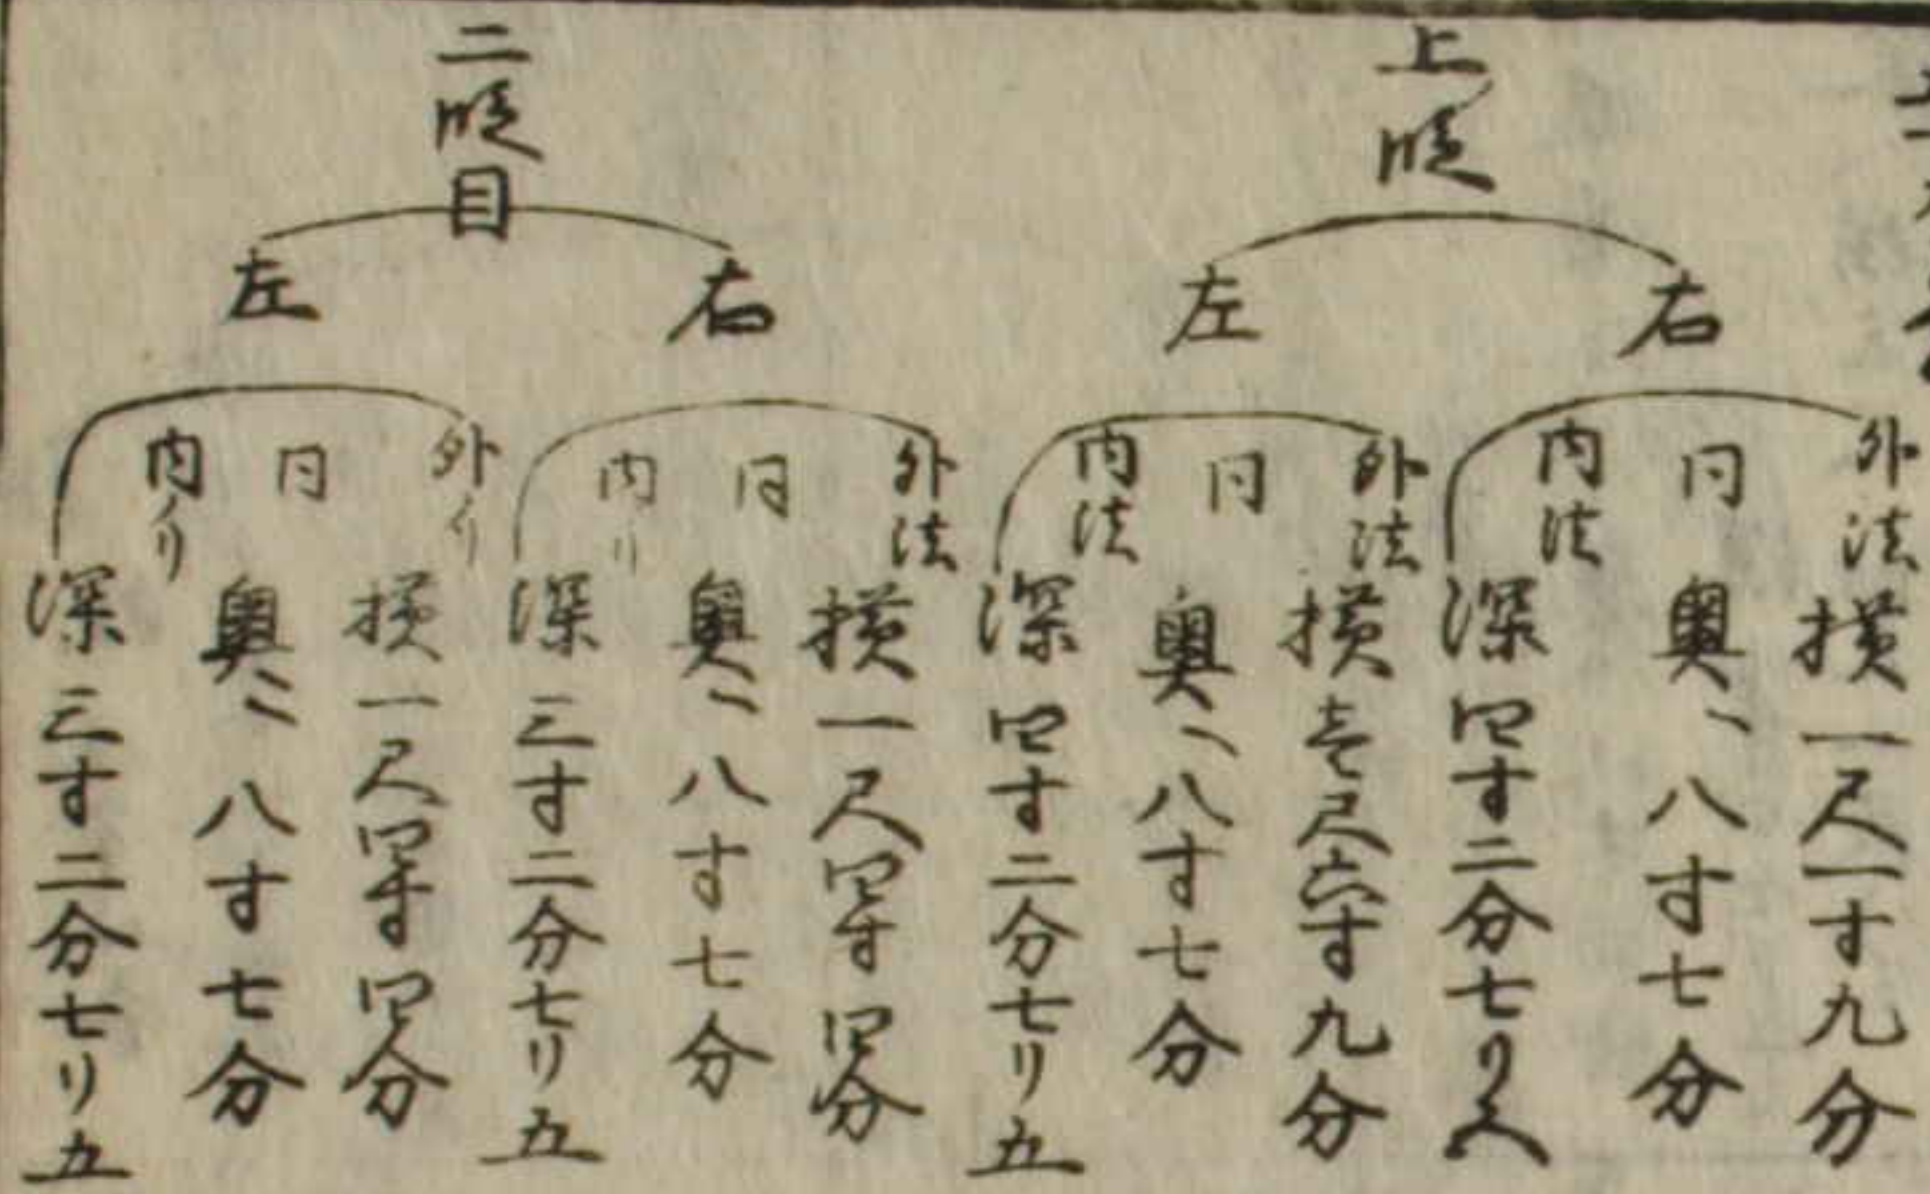 上段
右
外法 横一尺一寸九分
同 奥ミ八寸七分
内法 深四寸二分七り
左
外法 横壱尺六寸九分
同 奥ミ八寸七分
内法 深四寸二分七り五
二段目
右
外法 横一尺四寸四分
同 奥ミ八寸七分
内ノリ 深三寸二分七り五
左
外ノリ 横一尺四寸四分
同 奥ミ八寸七分
内ノリ 深三寸二分七り五